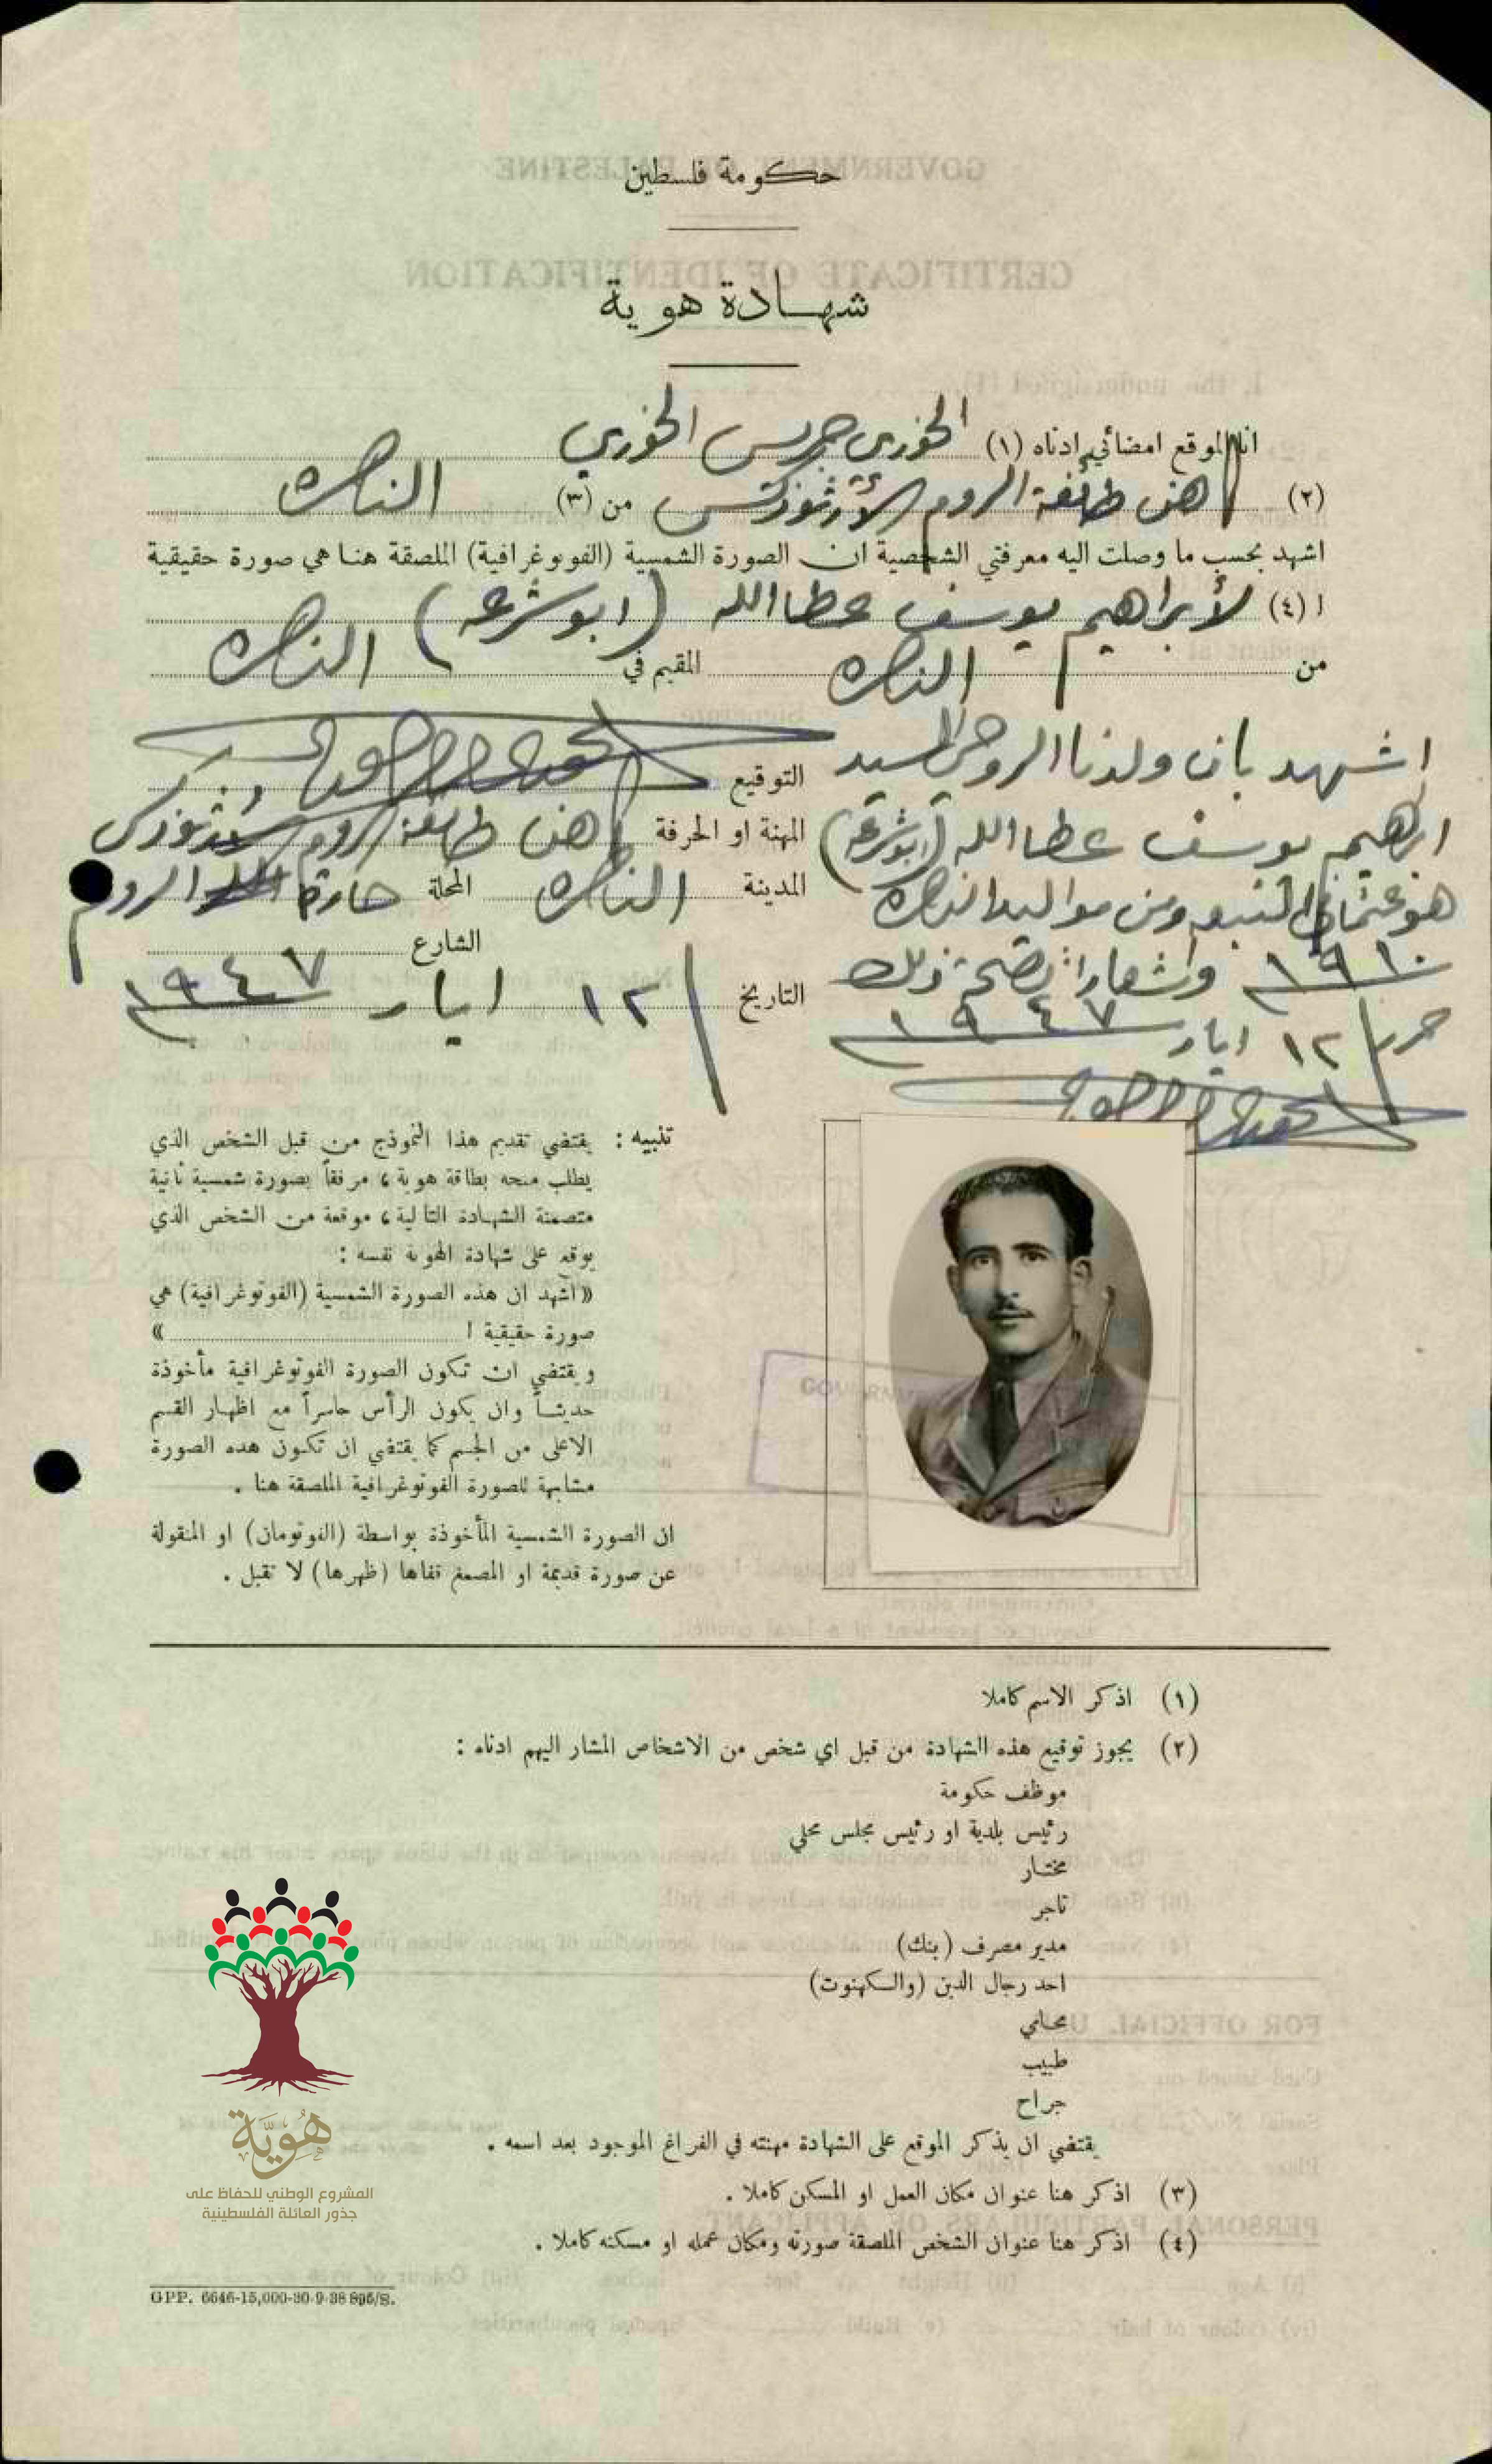 حكومة فلسطين
شهادة هوية
انا الموقع امضائي ادناه (١) الخوري جريس الخوري
(٢) كاهن طائفة الروم الأرثوذكس من (٣) الناصرة
اشهد بحسب ما وصلت اليه معرفتي الشخصية ان الصورة الشمسية (الفوتوغرافية) الملصقة هنا هي صورة حقيقية
ا (٤) لأبراهيم يوسف عطاالله (ابو شرعه)
من الناصرة المقيم في الناصرة
اشهد بان ولدنا الروحي السيد
ابراهيم يوسف عطاالله (ابو شرعه)
هو عثماني التبعه ومن مواليد الناصرة
١٩١٠ واشعارا بصحة ذلك
حرر ١٢ ايار ١٩٤٧
التوقيع
المهنة او الحرفة كاهن طائفة الروم الارثوذكس
المدينة الناصرة المحلة حارة الروم
الشارع
التاريخ ١٢ ايار ١٩٤٧
تنبيه : يقتضي تقديم هذا النموذج من قبل الشخص الذي
يطلب منحه بطاقة هوية ، مرفقاً بصورة شمسية ثانية
متضمنة الشهادة التالية ، موقعة من الشخص الذي
يوقع على شهادة الهوية نفسه :
« اشهد ان هذه الصورة الشمسية (الفوتوغرافية) هي
صورة حقيقية ا »
ويقتضي ان تكون الصورة الفوتوغرافية مأخوذة
حديثاً وان يكون الرأس حاسراً مع اظهار القسم
الاعلى من الجسم كما يقتضي ان تكون هذه الصورة
مشابهة للصورة الفوتوغرافية الملصقة هنا .
ان الصورة الشمسية المأخوذة بواسطة (الفوتومان) او المنقولة
عن صورة قديمة او المصمغ قفاها (ظهرها) لا تقبل .
(١) اذكر الاسم كاملا
(٢) يجوز توقيع هذه الشهادة من قبل اي شخص من الاشخاص المشار اليهم ادناه :
موظف حكومة
رئيس بلدية او رئيس مجلس محلي
مختار
تاجر
مدير مصرف (بنك)
احد رجال الدين (والكهنوت)
محامي
طبيب
جراح
يقتضي ان يذكر الموقع على الشهادة مهنته في الفراغ الموجود بعد اسمه .
(٣) اذكر هنا عنوان مكان العمل او المسكن كاملا .
(٤) اذكر هنا عنوان الشخص الملصقة صورته ومكان عمله او مسكنه كاملا .
GPP. 6646-15,000-30-9-38 895/S.
هُوِيَّة
المشروع الوطني للحفاظ على
جذور العائلة الفلسطينية